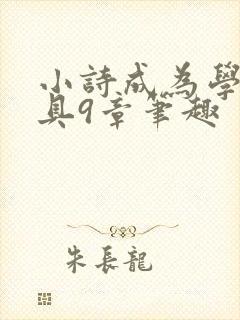 小詩成為學
具9章筆趣
朱長龍